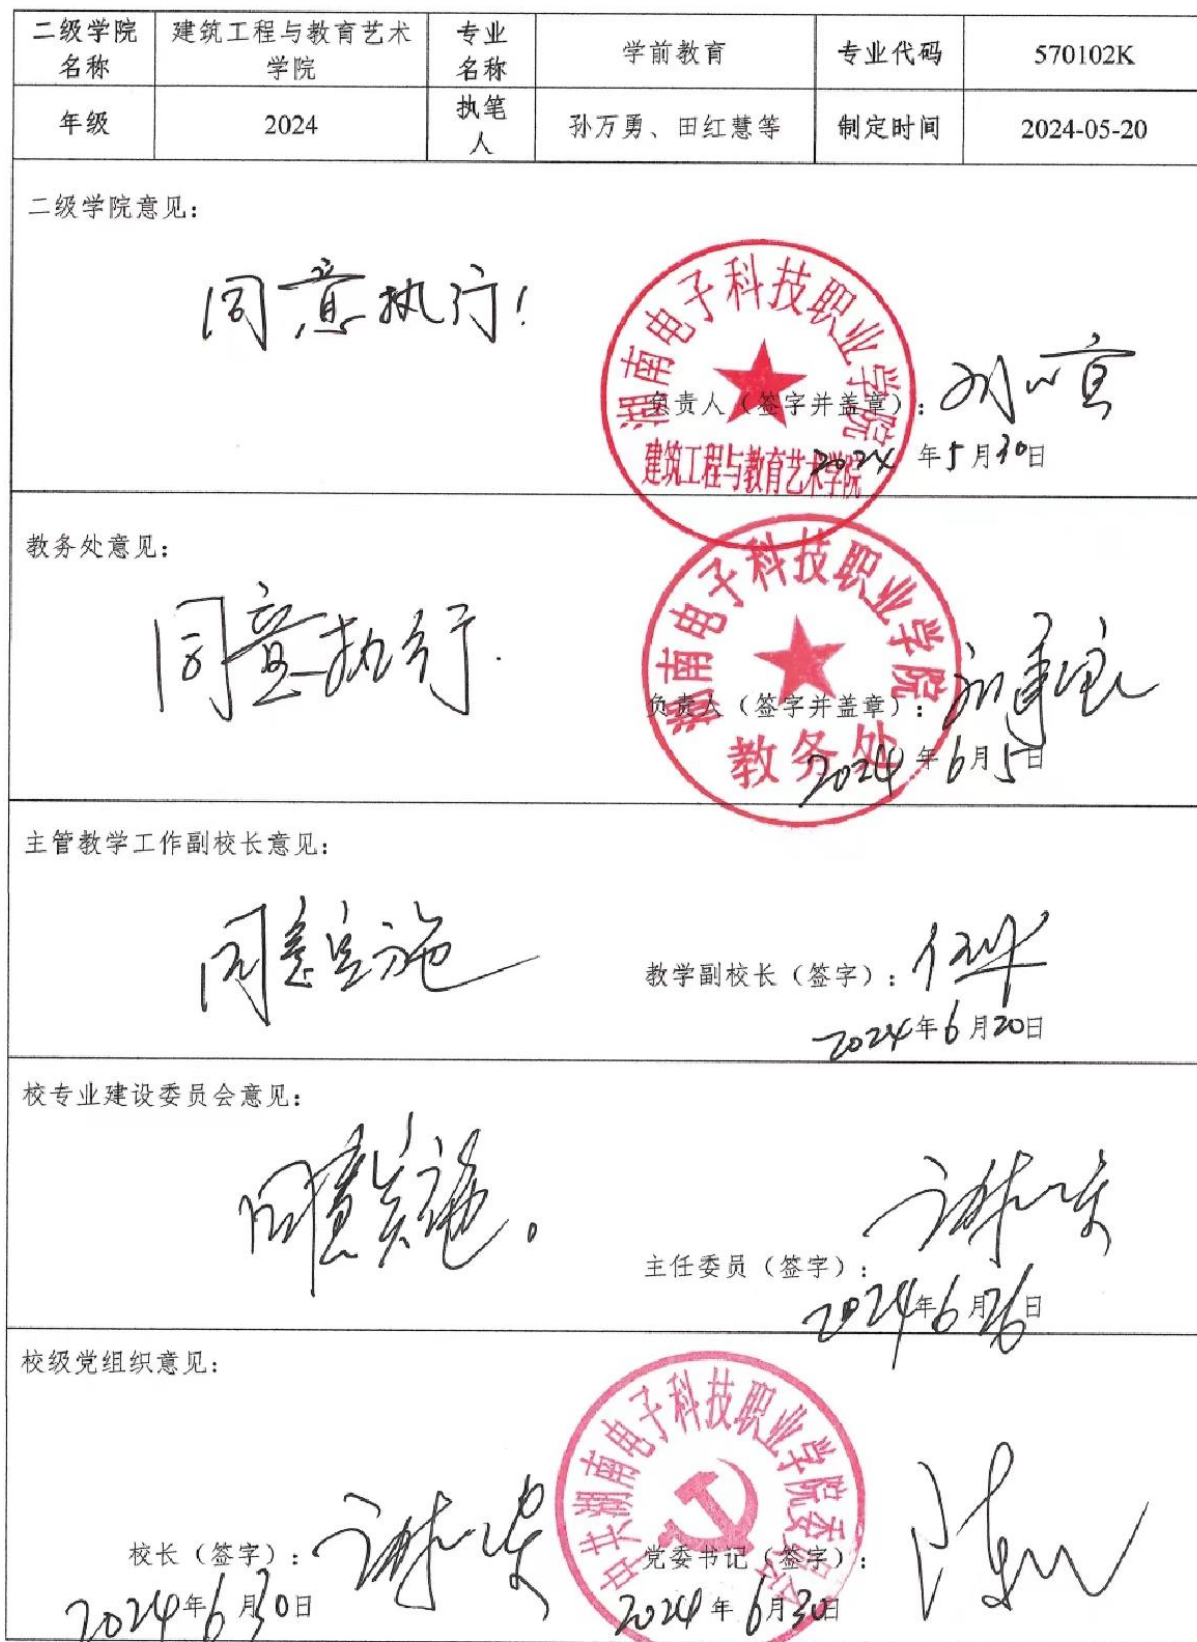 二级学院名称 建筑工程与教育艺术学院 专业名称 学前教育 专业代码 570102K
年级 2024 执笔人 孙万勇、田红慧等 制定时间 2024-05-20
二级学院意见：
同意执行！
湖南电子科技职业学院
建筑工程与教育艺术学院
负责人（签字并盖章）：
2024年5月30日
教务处意见：
同意执行.
湖南电子科技职业学院
教务处
负责人（签字并盖章）：
2024年6月5日
主管教学工作副校长意见：
同意实施
教学副校长（签字）：
2024年6月20日
校专业建设委员会意见：
同意实施。
主任委员（签字）：
2024年6月26日
校级党组织意见：
中共湖南电子科技职业学院委员会
校长（签字）： 党委书记（签字）：
2024年6月30日 2024年6月30日